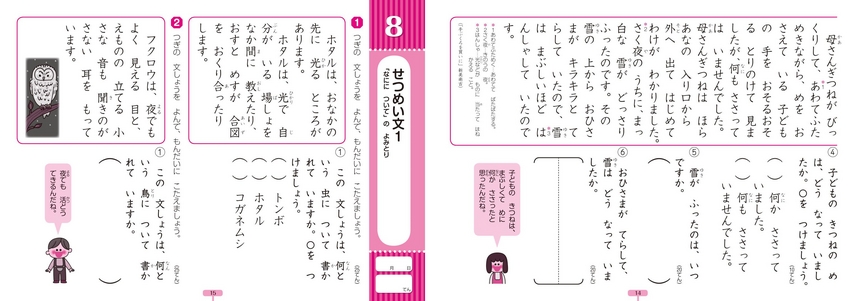 母さんぎつねが びっ
くりして、あわてふた
めきながら、めを お
さえて いる 子ども
の 手を おそるおそ
る とりのけて 見ま
したが、何も ささって
は いませんでした。
母さんぎつねは ほら
あなの 入り口から
外へ 出て はじめて
わけが わかりました。
さく夜の うちに、まっ
白な 雪が どっさり
ふったのです。その
雪の 上から おひさ
まが キラキラと て
らして いたので、雪
は まぶしいほど は
んしゃして いたので
す。
④ 子どもの きつねの め
は、どう なって いまし
たか。○を つけましょう。
(10てん)
( ) 何か ささって
いました。
( ) 何も ささって
いませんでした。
⑤ 雪が ふったのは、いつ
ですか。
(20てん)
⑥ おひさまが てらして、
雪は どう なって いま
したか。
(20てん)
子どもの きつねは、
まぶしくて めに
何か ささったと
思ったんだね。
14
8
せつめい文1
「なにに ついて」の よみとり
月 日
てん
1 つぎの 文しょうを よんで、もんだいに こたえましょう。
ホタルは、おなかの
先に 光る ところが
あります。
ホタルは、光で 自
分が いる 場しょを
なか間に 教えたり、
おすと めすが 合図
を おくり合ったり
します。
① この 文しょうは、何と
いう 虫に ついて 書か
れて いますか。○を つ
けましょう。
(20てん)
( ) トンボ
( ) ホタル
( ) コガネムシ
2 つぎの 文しょうを よんで、もんだいに こたえましょう。
フクロウは、夜でも
よく 見える 目と、
えものの 立てる 小
さな 音も 聞きのが
さない 耳を もって
います。
① この 文しょうは、何と
いう 鳥に ついて 書か
れて いますか。
(20てん)
夜でも 活どう
できるんだね。
15